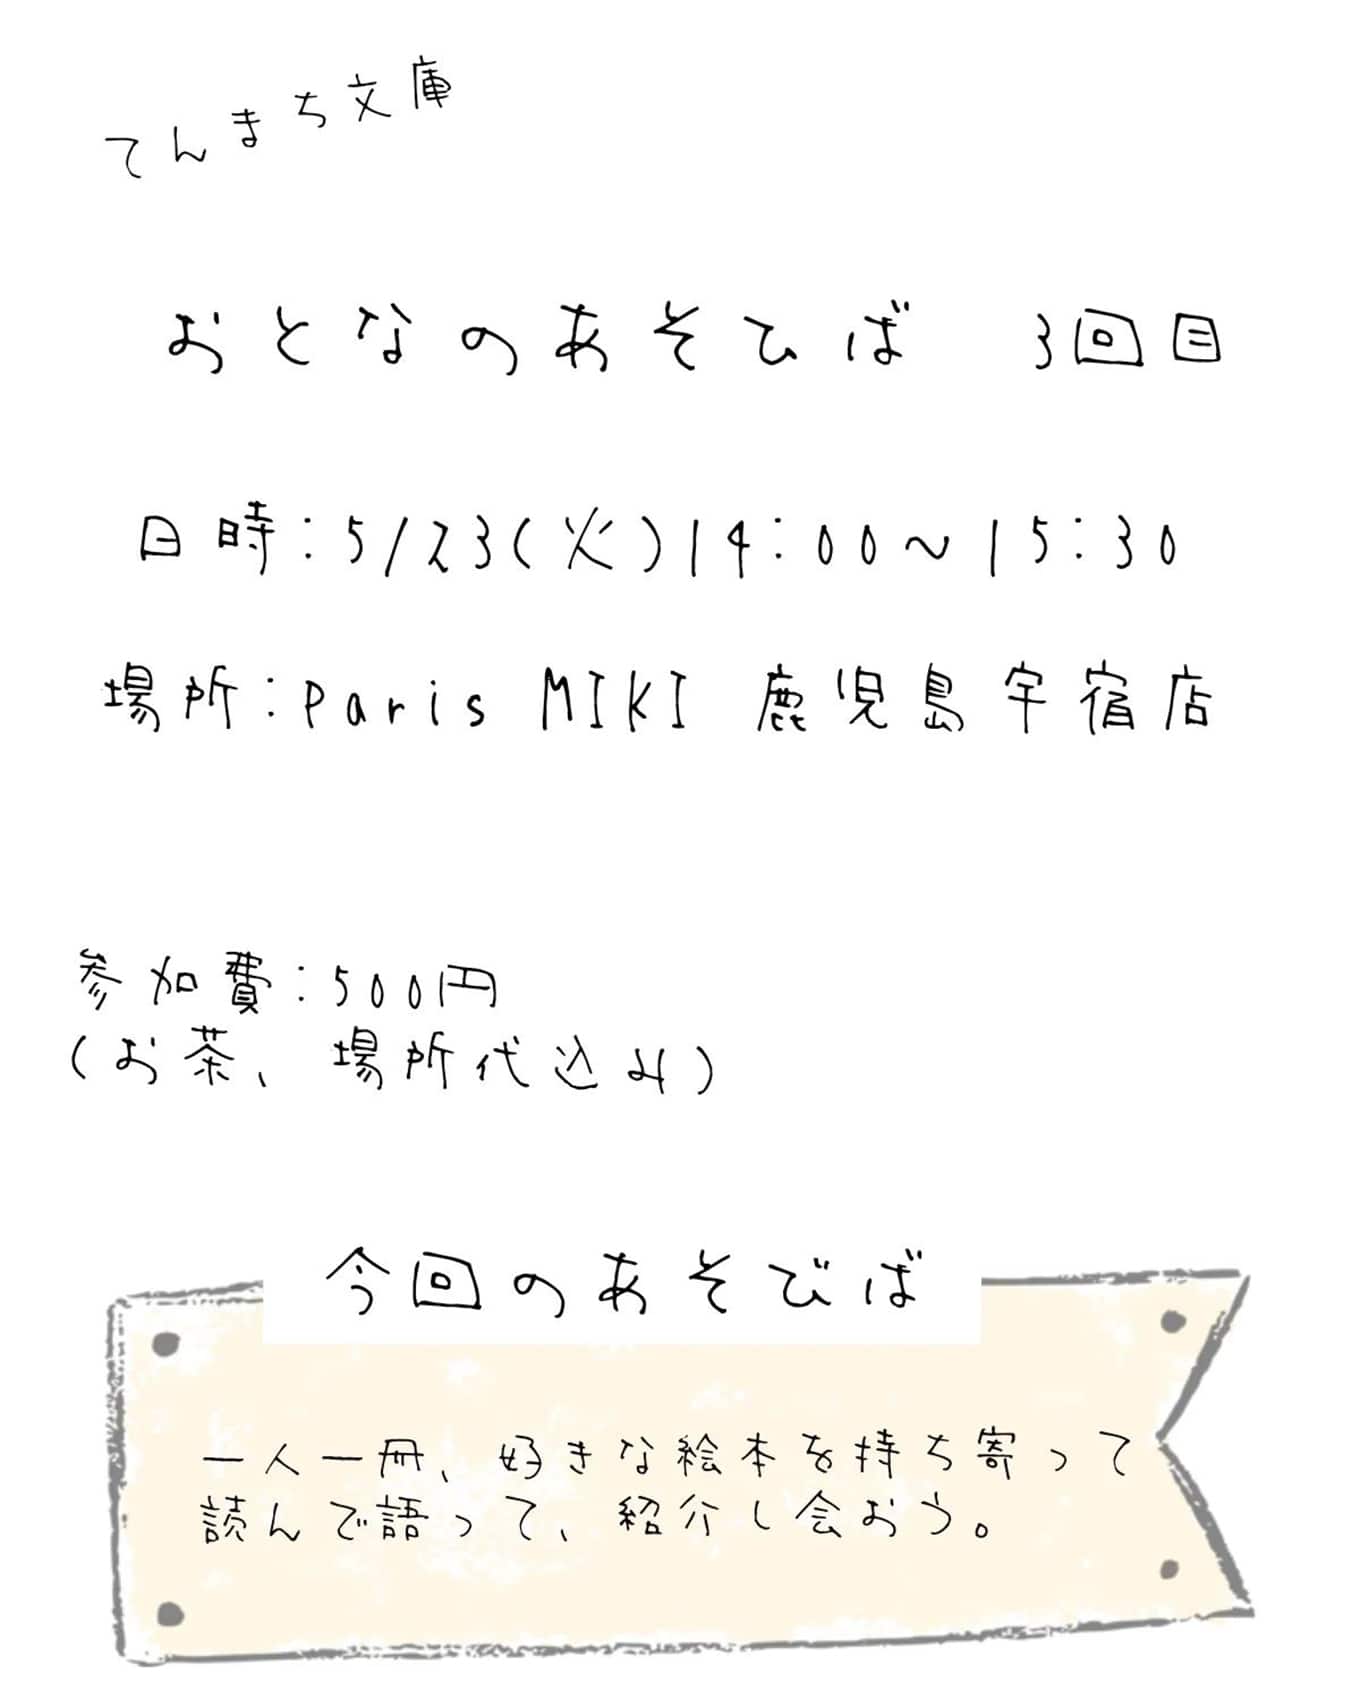 てんまち文庫
おとなのあそひば 3回目
日時:5/23(火)14:00～15:30
場所:Paris MIKI 鹿児島宇宿店
参加費:500円
(お茶、場所代込み)
今回のあそびば
一人一冊、好きな絵本を持ち寄って
読んで語って、紹介し会おう。